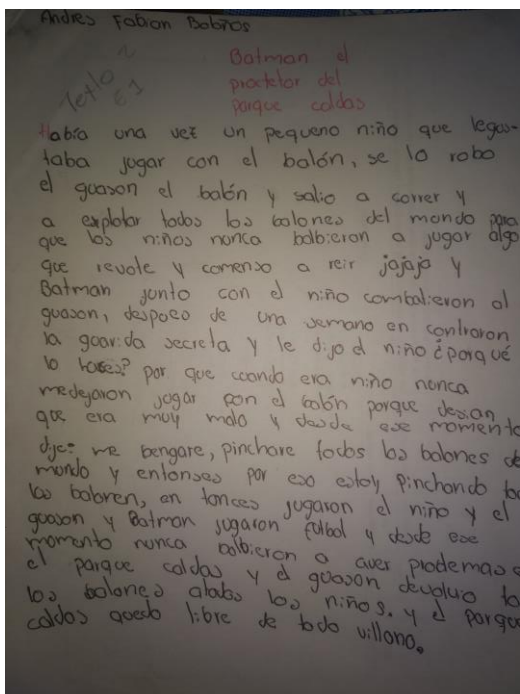 Andres Fabian Bolaños
Texto 2
61
Batman el
proctetor del
parque caldas
Había una vez un pequeno niño que legus-
taba jugar con el balón, se lo robo
el guason el balón y salio a correr y
a explotar todos los balones del mondo para
que los niños nunca bolbieron a jugar algo
que revote y comenso a reir jajaja y
Batman junto con el niño combatieron al
guason, despues de una semana en contraron
la guarida secreta y le dijo el niño ¿porqué
lo haces? por que cuando era niño nunca
medejaron jugar con el balón porque desian
que era muy malo y desde ese momento
dije: me bengare, pinchare todos los balones de
mundo y entonses por eso estoy pinchando tod
los balones, en tonces jugaron el niño y el
guason y Batman jugaron futbol y desde ese
momento nunca bolbieron a aver prodemas e
el parque caldas y el guason devolvio to
los balones atodos los niños. y el parque
caldas quedo libre de todo villano.